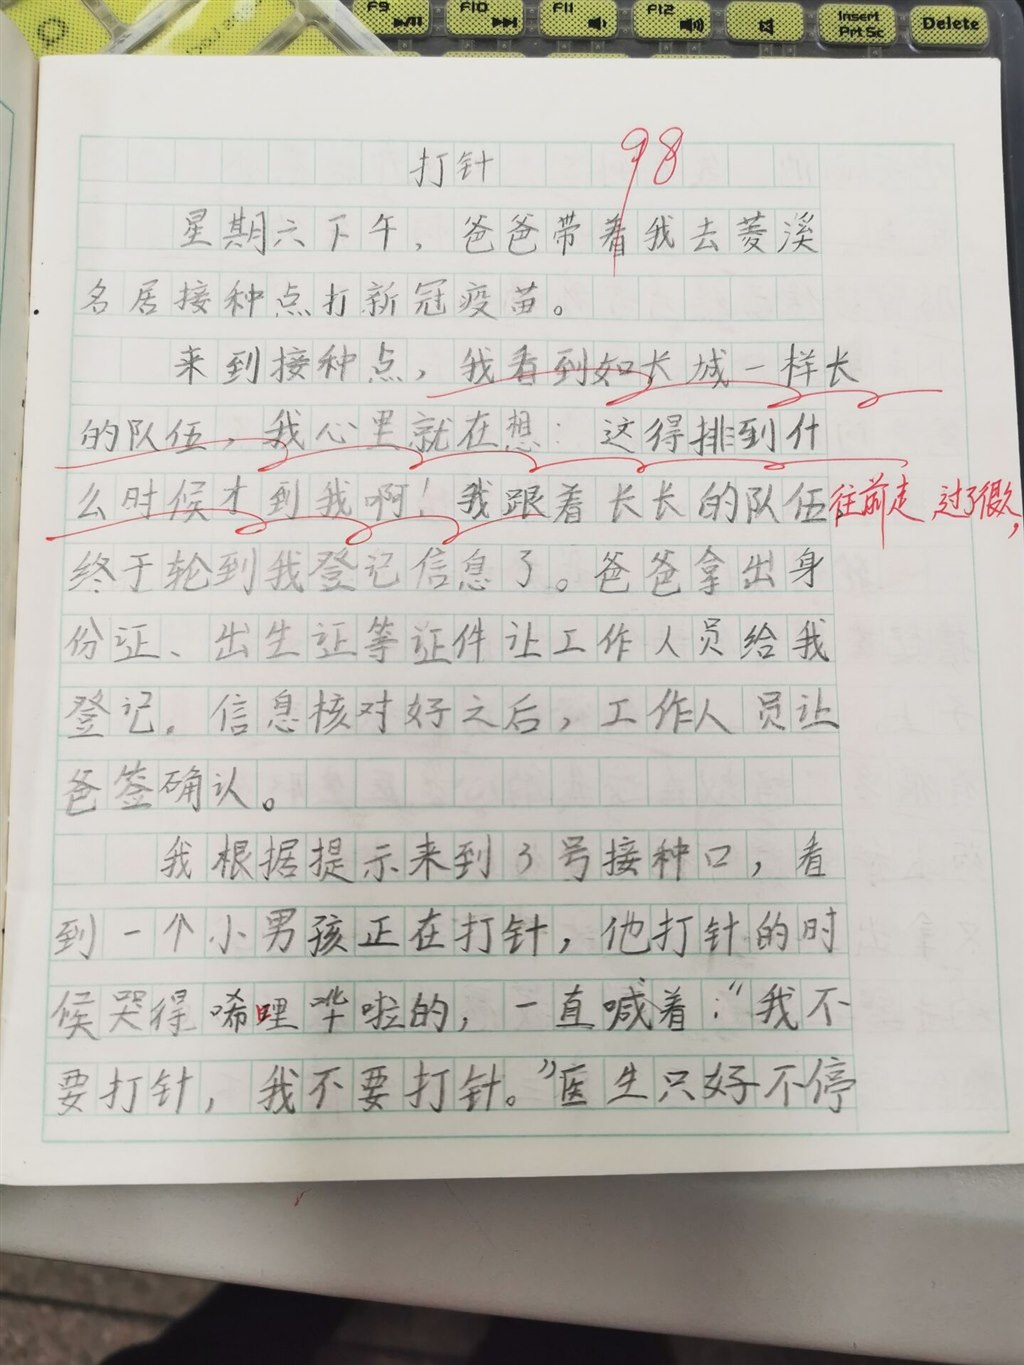 F9 F10 F11 F12 Insert Prt Sc Delete
打针 98
星期六下午，爸爸带着我去菱溪
名居接种点打新冠疫苗。
来到接种点，我看到如长城一样长
的队伍，我心里就在想：这得排到什
么时候才到我啊！我跟着长长的队伍往前走 过了很久，
终于轮到我登记信息了。爸爸拿出身
份证、出生证等证件让工作人员给我
登记。信息核对好之后，工作人员让
爸签确认。
我根据提示来到3号接种口，看
到一个小男孩正在打针，他打针的时
候哭得唏哩哗啦的，一直喊着：“我不
要打针，我不要打针。”医生只好不停